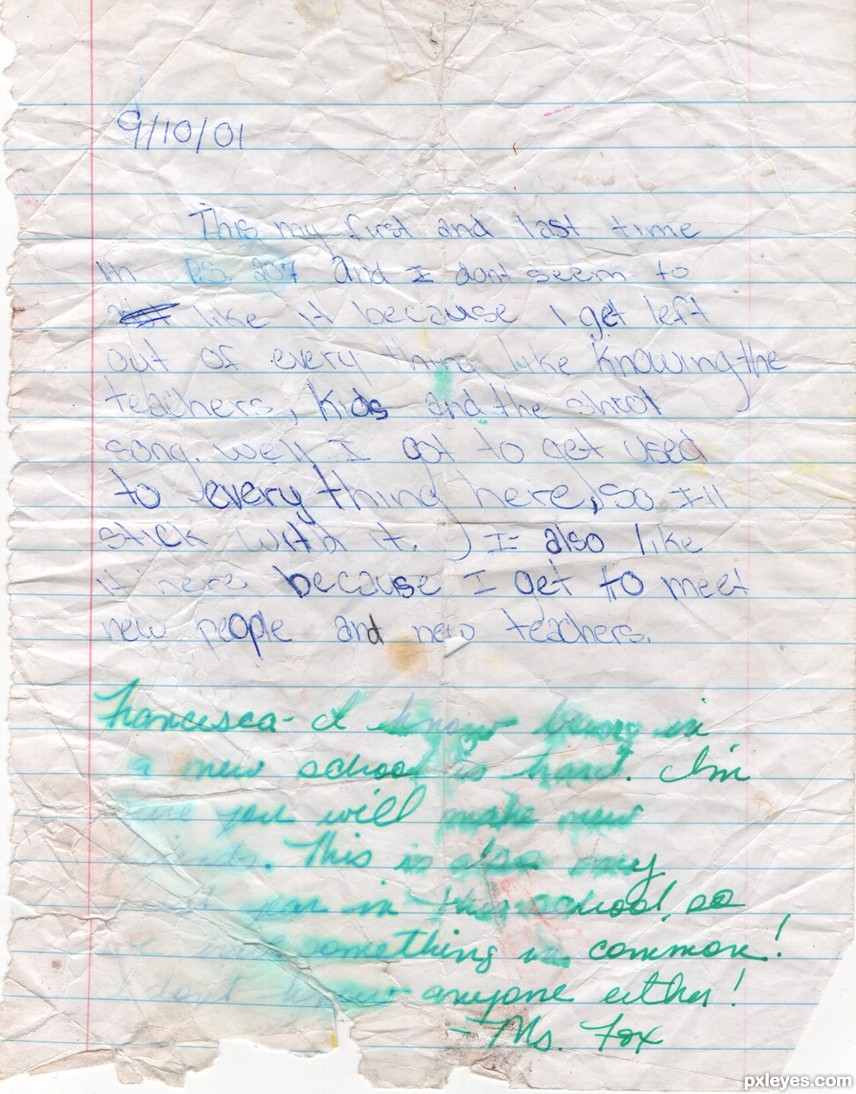 9/10/01
This my first and last time
in P.S. 207 and I dont seem to
like it because I get left
out of every thing like knowing the
teachers, kids and the shool
song. well I got to get used
to every thing here, so I'll
stick with it. I also like
it here because I get to meet
new people and new teachers.
Francesca- I know being in
a new school is hard. I'm
you will make new
. This is also my
year in this school, so
something in common!
dont know anyone either!
- Ms. Fox
pxleyes.com